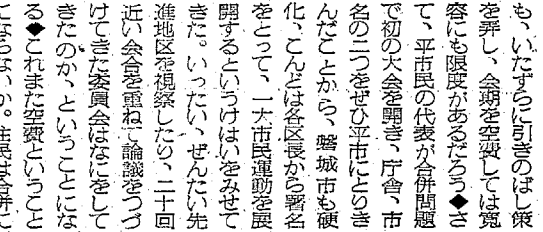 も、いたずらに引きのばし策
を弄し、会期を空費しては寛
容にも限度があるだろう◆さ
て、平市民の代表が合併問題
で初の大会を開き、庁舎、市
名の二つをぜひ平市にとりき
んだことから、磐城市も硬
化、こんどは各区長から署名
をとって、一大市民運動を展
開するというけはいをみせて
きた。いったい、ぜんたい先
進地区を視察したり、二十回
近い会合を重ねて論議をつづ
けてきた委員会はなにをして
きたのか、ということにな
る◆これまた空費ということ
にならないか。住民は合併に